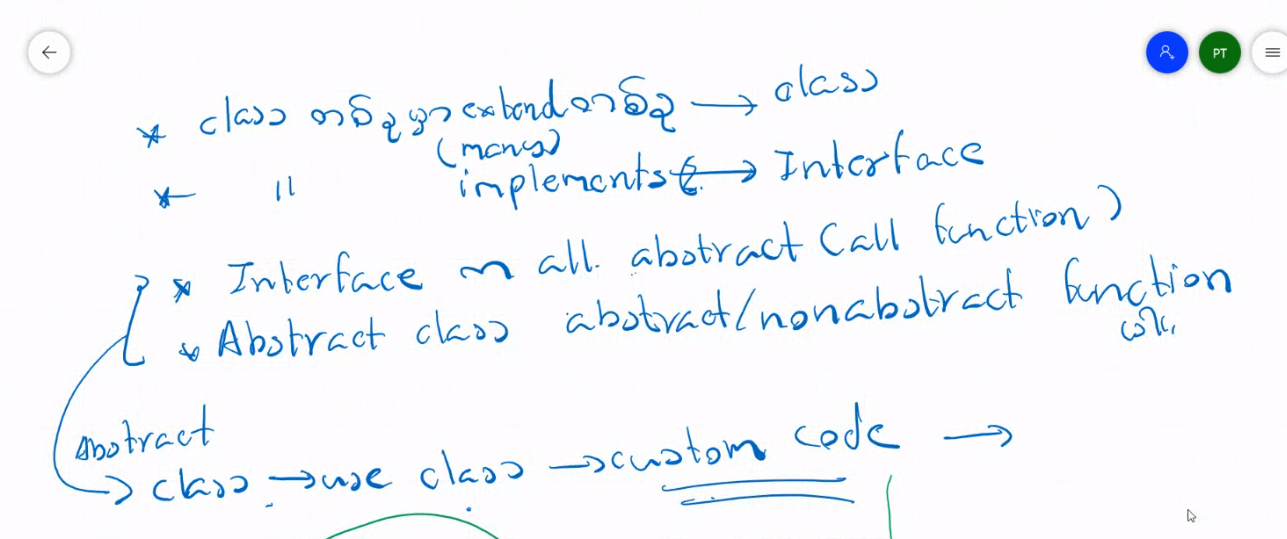 PT
* class တစ်ခုမှာ extend တစ်ခု → class
(many)
* " implements → Interface
* Interface က all. abstract Call function)
* Abstract class abstract/nonabstract function
Abstract
→ class → use class → custom code →